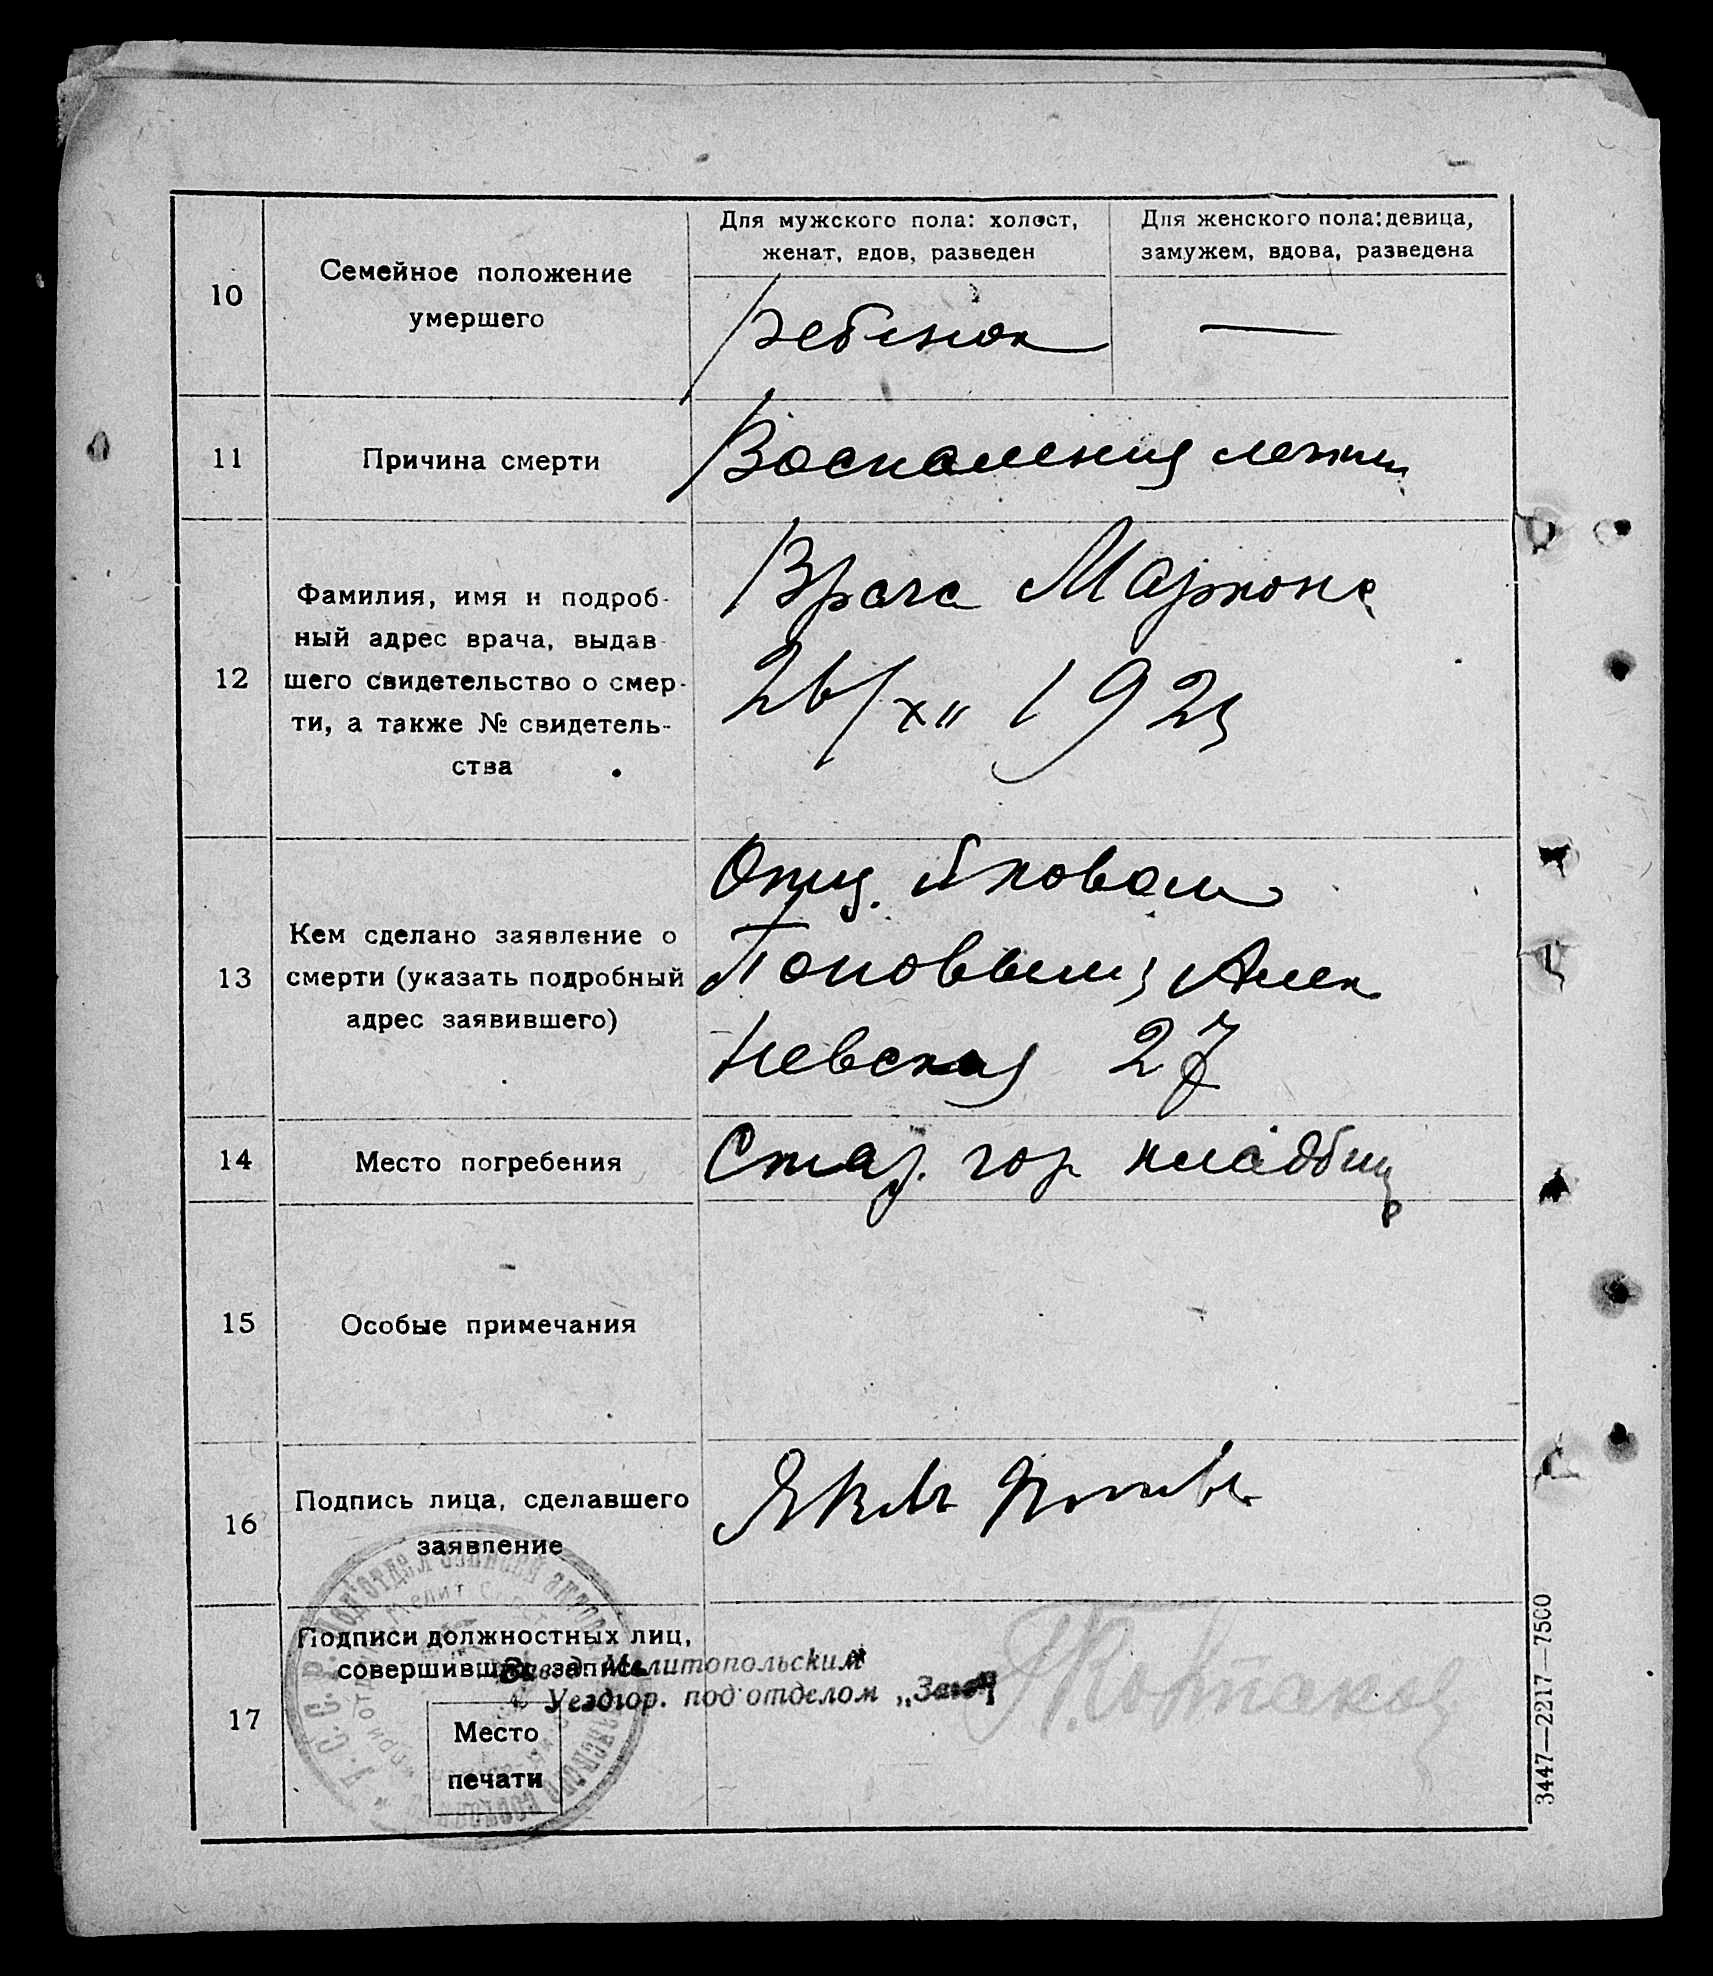 10
Семейное положение
умершего
Для мужского пола: холост,
женат, вдов, разведен
Для женского пола: девица,
замужем, вдова, разведена
ребенок
—
11
Причина смерти
Воспаления легких
12
Фамилия, имя и подроб-
ный адрес врача, выдав-
шего свидетельство о смер-
ти, а также № свидетель-
ства
Врача
26/XII 192
13
Кем сделано заявление о
смерти (указать подробный
адрес заявившего)
Отц. Яковом
Поповым, Алек
Невская 27
14
Место погребения
Стар. гор кладбищ
15
Особые примечания
16
Подпись лица, сделавшего
заявление
Яков Попов
17
Подписи должностных лиц,
совершивших запись
Мелитопольским
Уездгор. под'отделом
Место
печати
3447—2217—7500